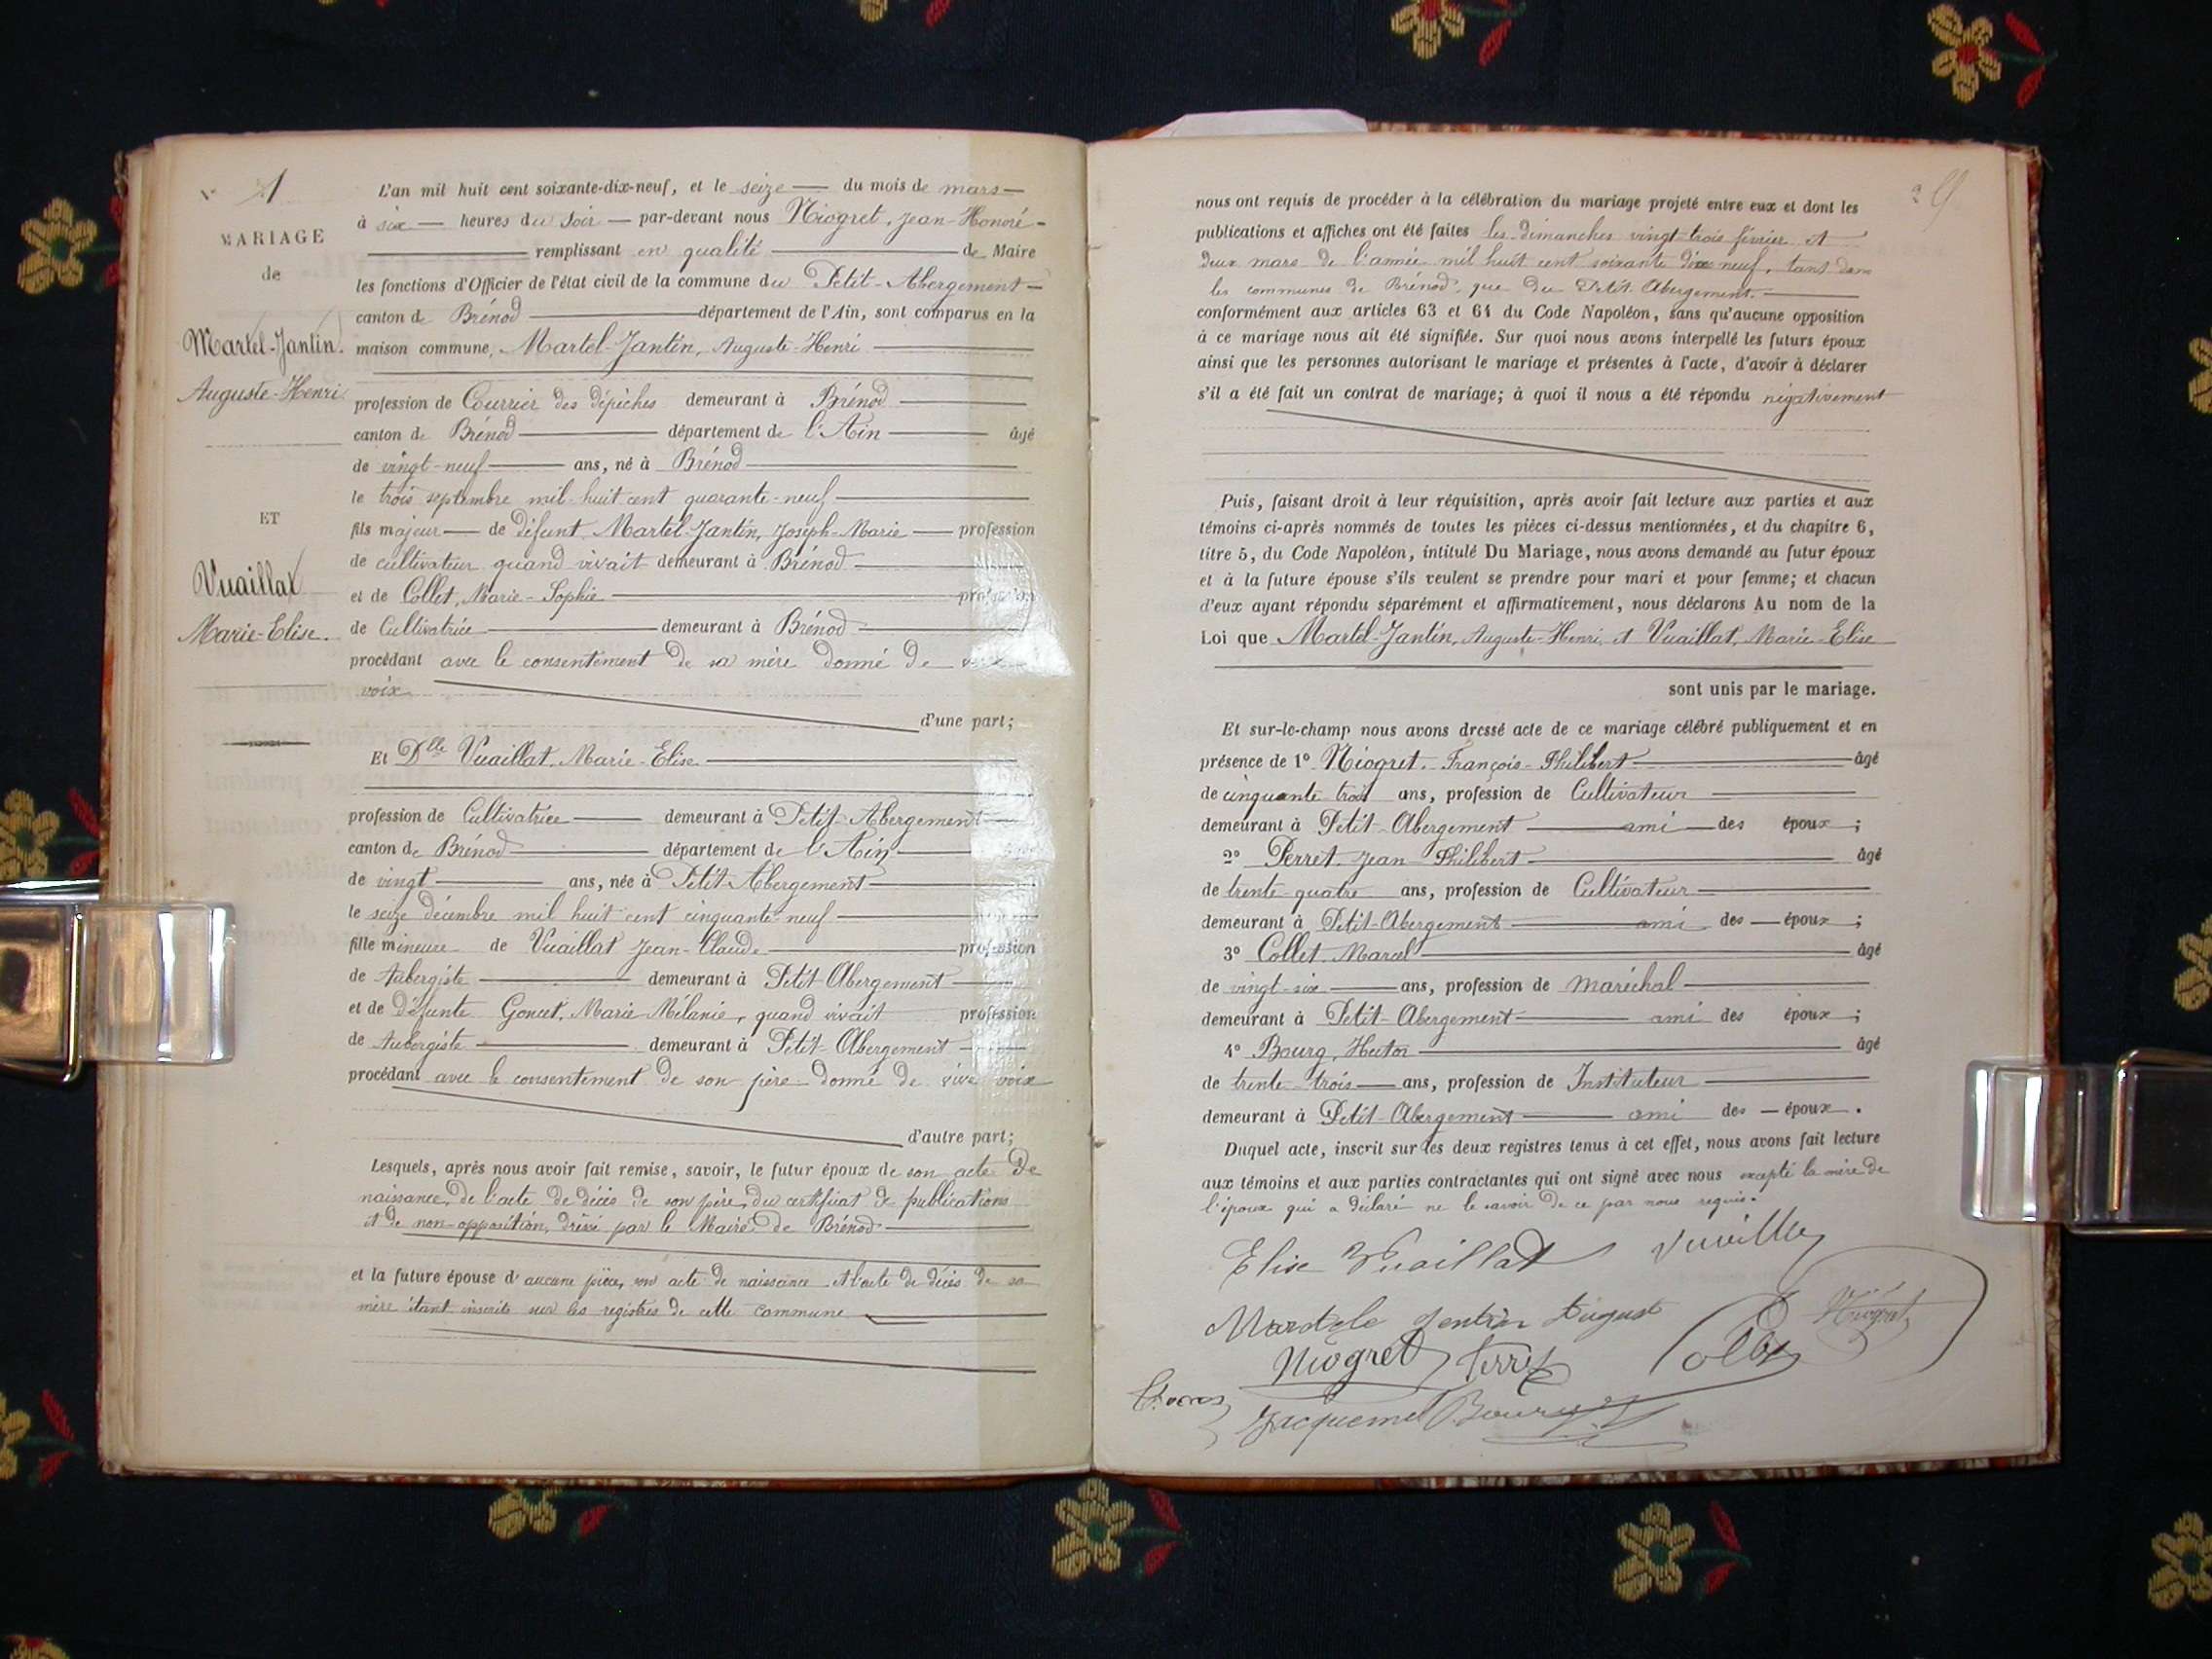 N° 1
MARIAGE
de
Martel-Jantin.
Auguste-Henri
ET
Vuaillat
Marie-Elise.
L'an mil huit cent soixante-dix-neuf, et le seize du mois de mars
à six heures du soir par-devant nous Niogret, Jean-Honoré
remplissant en qualité de Maire
les fonctions d'Officier de l'état civil de la commune du Petit-Abergement
canton de Brénod département de l'Ain, sont comparus en la
maison commune, Martel-Jantin, Auguste-Henri
profession de Courrier des dépêches demeurant à Brénod
canton de Brénod département de l'Ain âgé
de vingt-neuf ans, né à Brénod
le trois septembre mil huit cent quarante-neuf
fils majeur de défunt Martel-Jantin, Joseph-Marie profession
de cultivateur quand vivait demeurant à Brénod
et de Collet, Marie-Sophie profession
de Cultivatrice demeurant à Brénod
procédant avec le consentement de sa mère donné de vive
voix
d'une part;
Et Dlle Vuaillat, Marie-Elise
profession de Cultivatrice demeurant à Petit-Abergement
canton de Brénod département de l'Ain
de vingt ans, née à Petit-Abergement
le seize décembre mil huit cent cinquante-neuf
fille mineure de Vuaillat Jean-Claude profession
de Aubergiste demeurant à Petit-Abergement
et de Défunte Goncet, Marie Mélanie, quand vivait profession
de Aubergiste demeurant à Petit-Abergement
procédant avec le consentement de son père donné de vive voix
d'autre part;
Lesquels, après nous avoir fait remise, savoir, le futur époux de son acte de
naissance, de l'acte de décès de son père, du certificat de publications
et de non-opposition, dressé par le Maire de Brénod
et la future épouse d'aucune pièce, son acte de naissance et l'acte de décès de sa
mère étant inscrits sur les registres de cette commune
nous ont requis de procéder à la célébration du mariage projeté entre eux et dont les
publications et affiches ont été faites les dimanches vingt-trois février et
deux mars de l'année mil huit cent soixante dix neuf, tant dans
les communes de Brénod, que du Petit-Abergement.
conformément aux articles 63 et 64 du Code Napoléon, sans qu'aucune opposition
à ce mariage nous ait été signifiée. Sur quoi nous avons interpellé les futurs époux
ainsi que les personnes autorisant le mariage et présentes à l'acte, d'avoir à déclarer
s'il a été fait un contrat de mariage; à quoi il nous a été répondu négativement
Puis, faisant droit à leur réquisition, après avoir fait lecture aux parties et aux
témoins ci-après nommés de toutes les pièces ci-dessus mentionnées, et du chapitre 6,
titre 5, du Code Napoléon, intitulé Du Mariage, nous avons demandé au futur époux
et à la future épouse s'ils veulent se prendre pour mari et pour femme; et chacun
d'eux ayant répondu séparément et affirmativement, nous déclarons Au nom de la
Loi que Martel-Jantin, Auguste-Henri, et Vuaillat, Marie-Elise
sont unis par le mariage.
Et sur-le-champ nous avons dressé acte de ce mariage célébré publiquement et en
présence de 1° Niogret, François-Philibert âgé
de cinquante trois ans, profession de Cultivateur
demeurant à Petit-Abergement ami des époux;
2° Perret, Jean-Philibert âgé
de trente-quatre ans, profession de Cultivateur
demeurant à Petit-Abergement ami des époux;
3° Collet Marcel âgé
de vingt-six ans, profession de maréchal
demeurant à Petit-Abergement ami des époux;
4° Bourg, Hector âgé
de trente-trois ans, profession de Instituteur
demeurant à Petit-Abergement ami des époux.
Duquel acte, inscrit sur les deux registres tenus à cet effet, nous avons fait lecture
aux témoins et aux parties contractantes qui ont signé avec nous excepté la mère de
l'époux qui a déclaré ne le savoir de ce par nous requis.
Elise Vuaillat
Niogret
Perret
Jacquemet Bourg